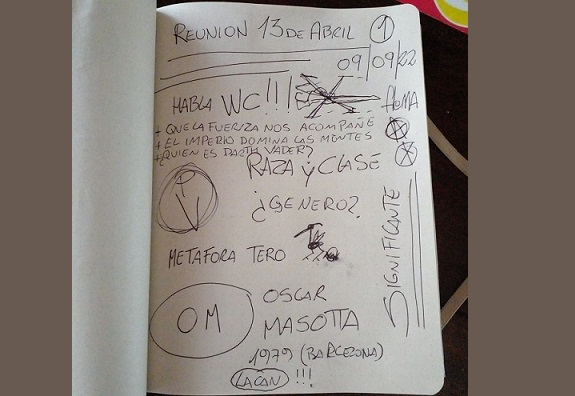 REUNION 13 DE ABRIL 1
09/09/22
HABLA WC!!!
+ QUE LA FUERZA NOS ACOMPAÑE
+ EL IMPERIO DOMINA LAS MENTES
+ ¿QUIEN ES DARTH VADER?
RAZA Y CLASE
PV
¿GENERO?
SIGNIFICANTE
METAFORA TERO
OM
OSCAR
MASOTTA
1979 (BARCELONA)
LACAN !!!